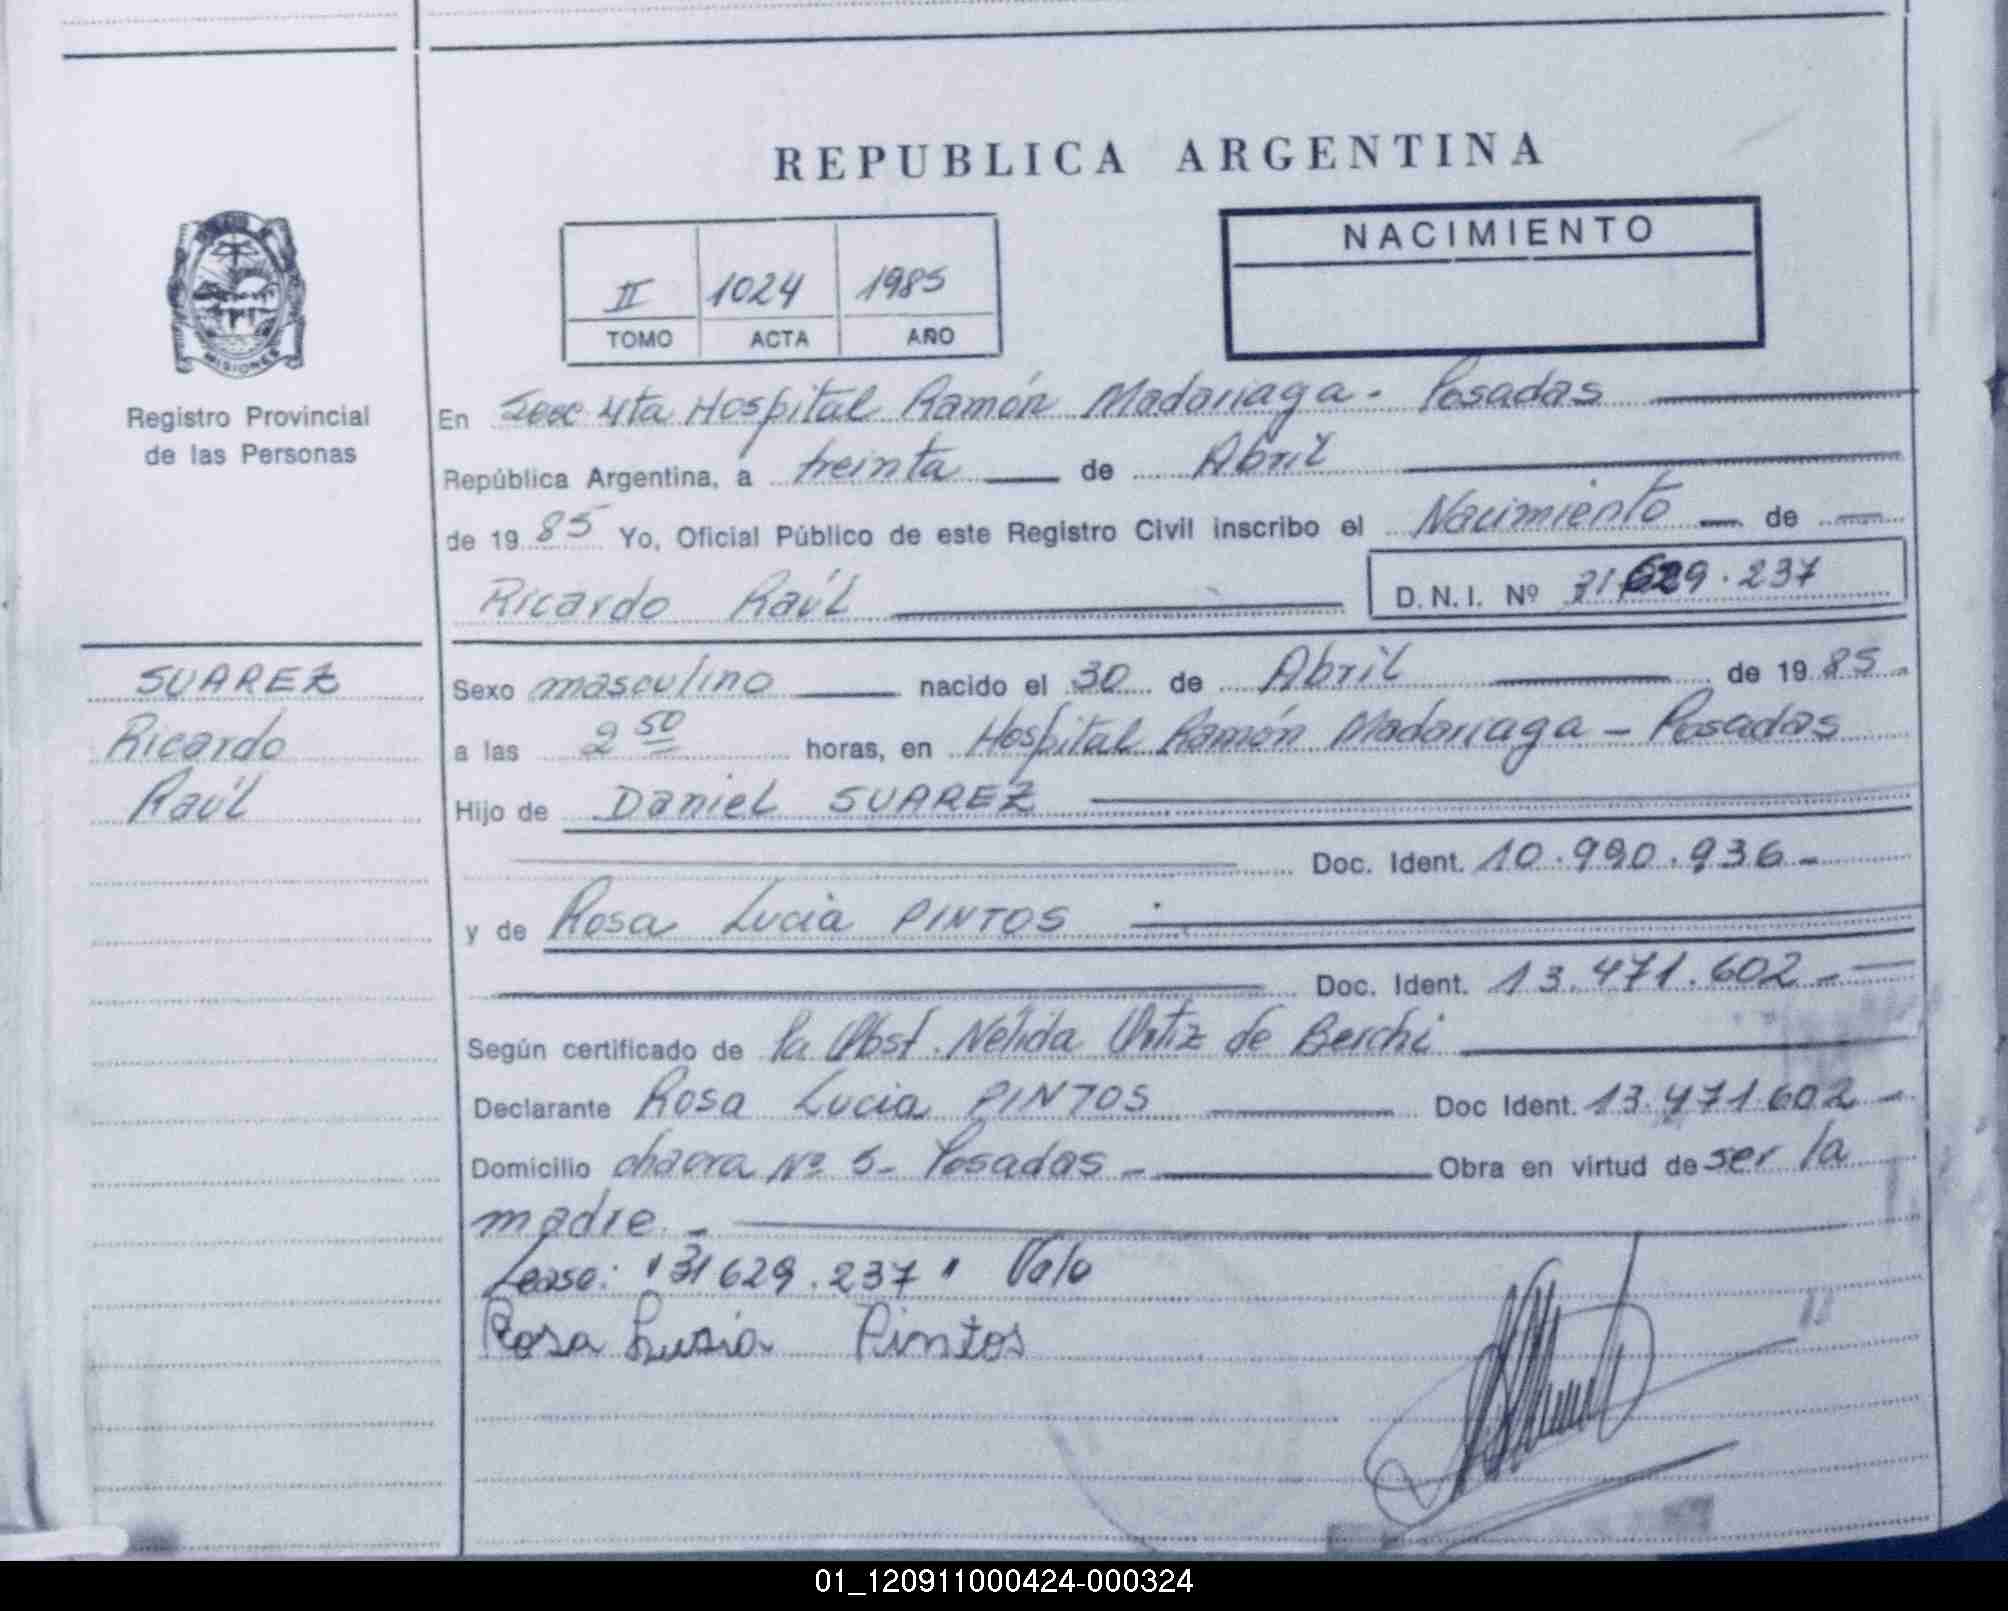 REPUBLICA ARGENTINA
NACIMIENTO
II 1024 1985
TOMO ACTA AÑO
MISIONES
Registro Provincial
de las Personas
En Secc 4ta Hospital Ramón Madariaga - Posadas
República Argentina, a treinta de Abril
de 1985 Yo, Oficial Público de este Registro Civil inscribo el Nacimiento de
Ricardo Raúl D.N.I. Nº 31.629.237
SUAREZ
Ricardo
Raúl
Sexo masculino nacido el 30 de Abril de 1985
a las 2 50 horas, en Hospital Ramón Madariaga - Posadas
Hijo de Daniel SUAREZ
Doc. Ident. 10.990.936 -
y de Rosa Lucia PINTOS
Doc. Ident. 13.471.602 -
Según certificado de la Obst. Nélida Ortiz de Berchi
Declarante Rosa Lucia PINTOS Doc Ident. 13.471.602 -
Domicilio chacra Nº 5 - Posadas - Obra en virtud de ser la
madre -
Lease: "31629.237" Vale
Rosa Lusia Pintos
01_120911000424-000324